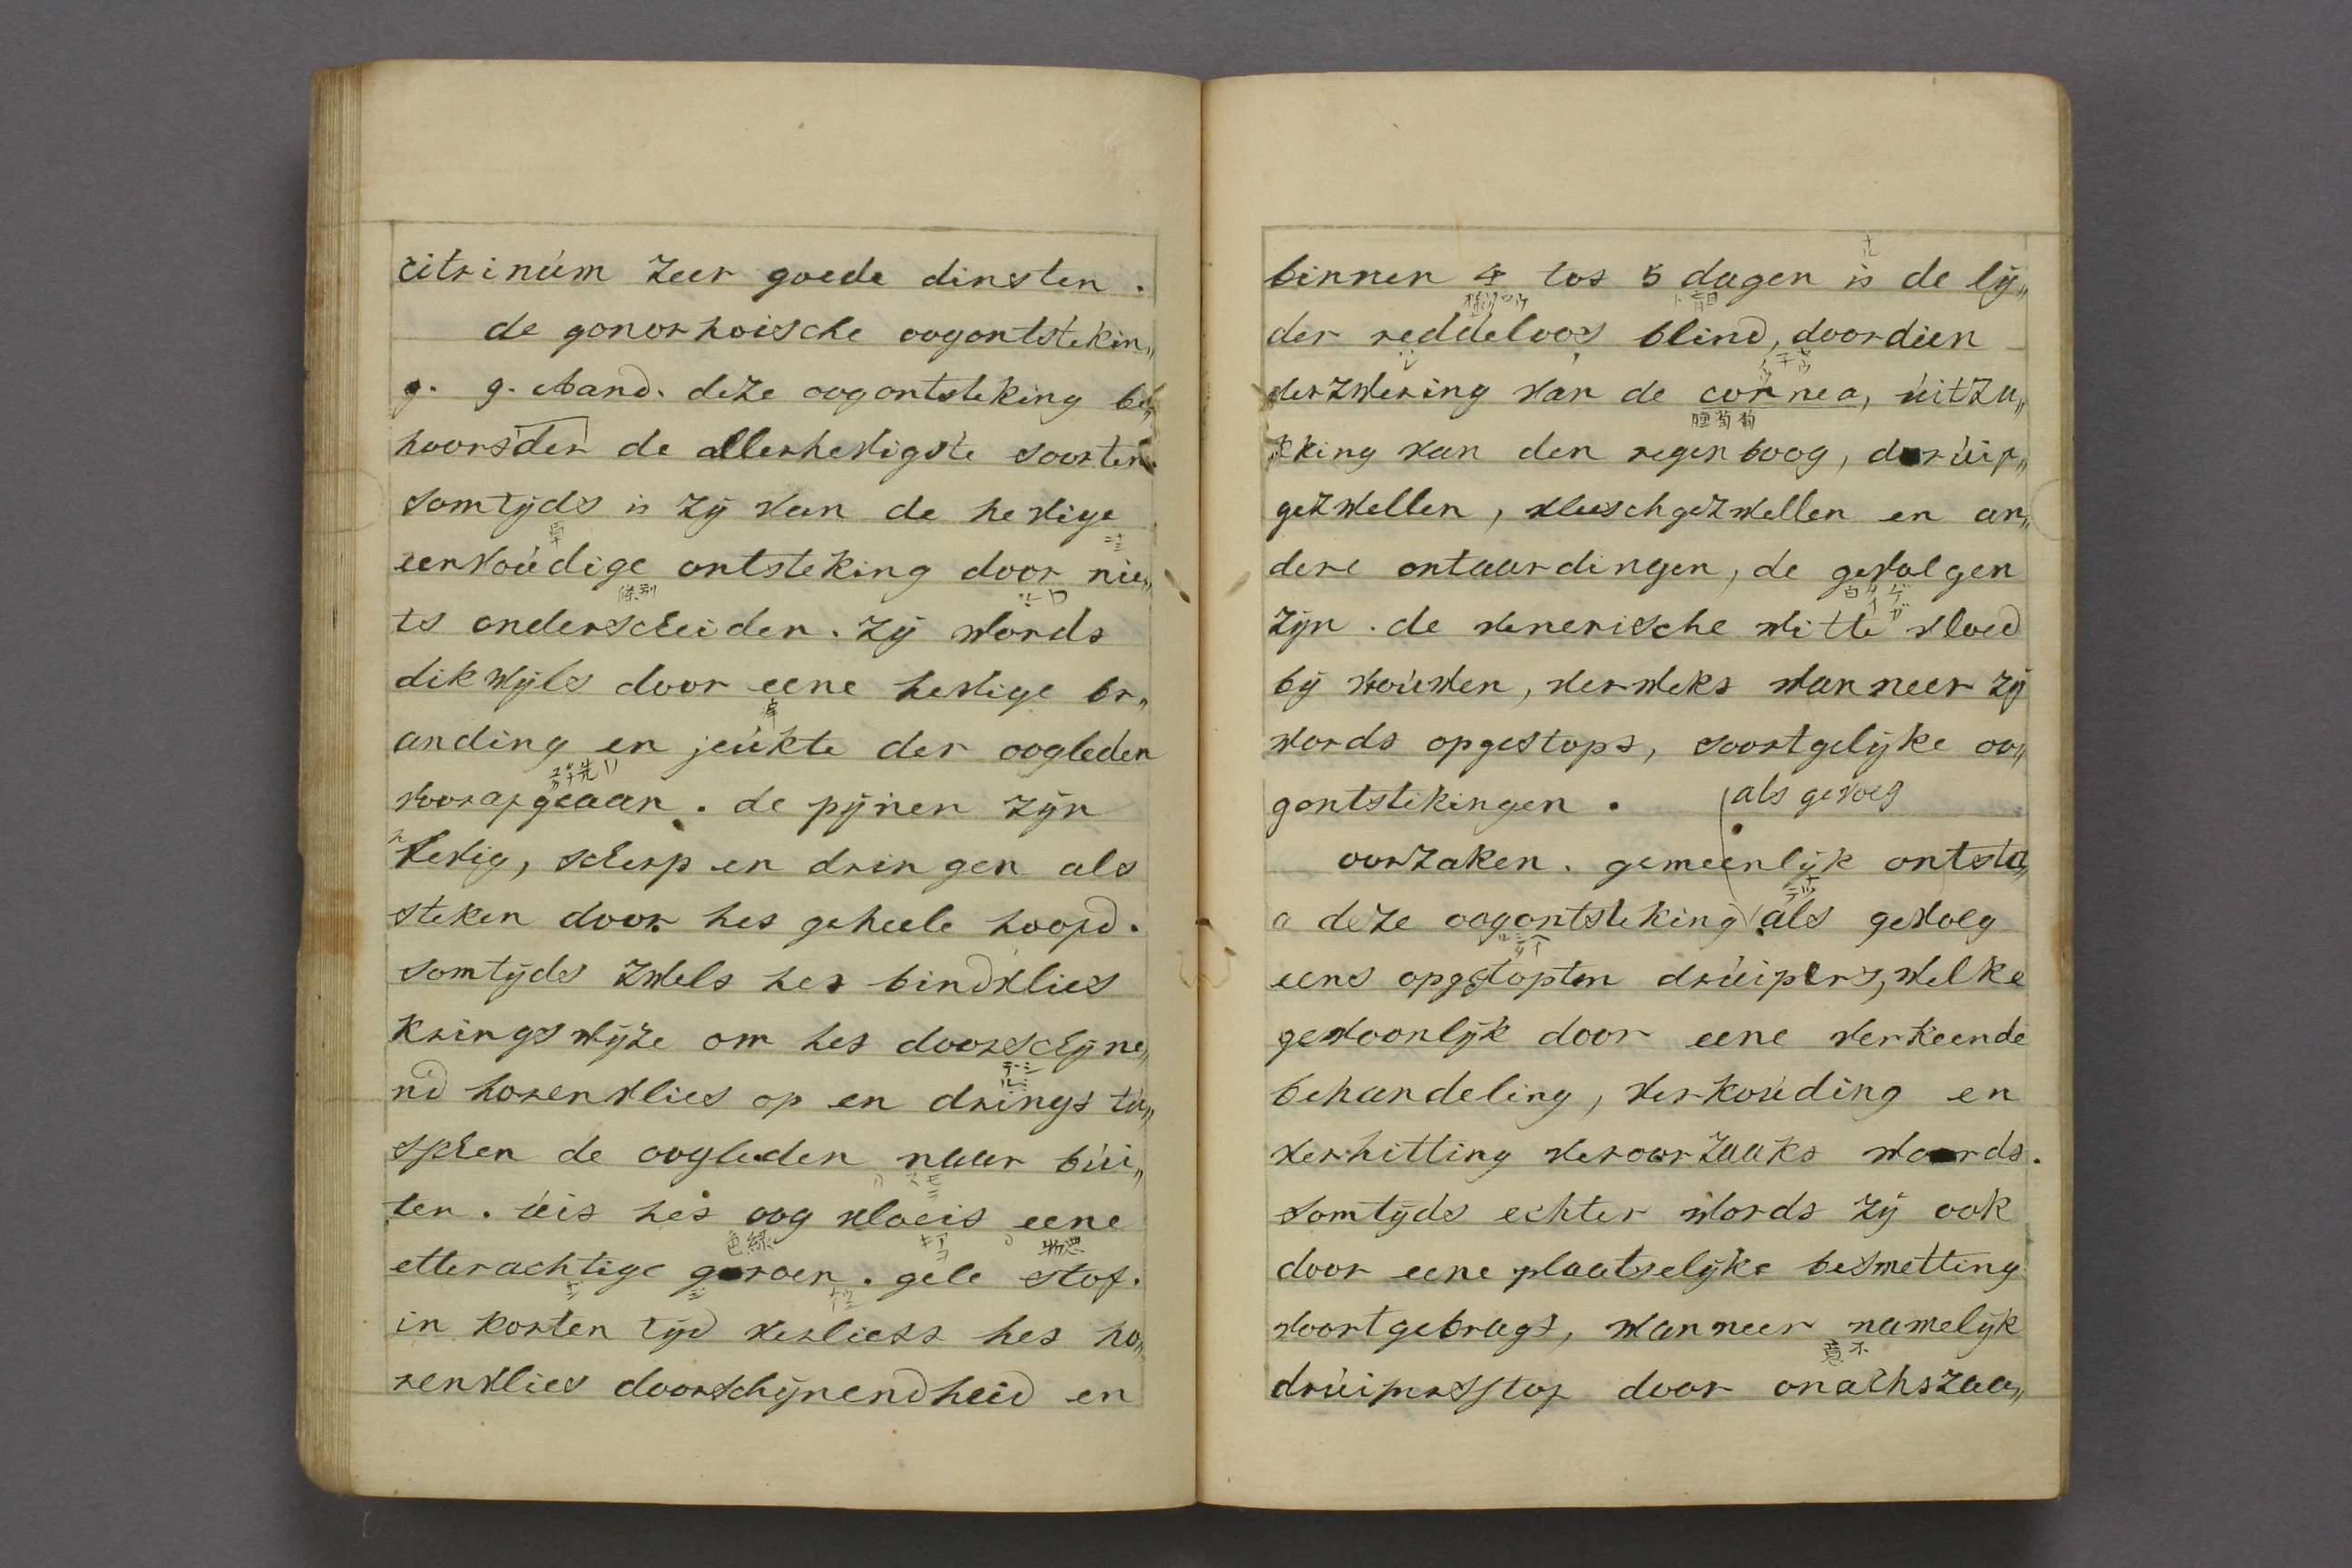 citrinúm zeer goede dinsten.
de gonorhoische oogontstekin„
g. g. Aand. deze oogontsteking be„
hoorsder de allerhevigste soorten
somtÿds is zÿ van de hevige
單
eenvoúdige ontsteking door nie„
ts onderscheiden. zÿ words
dikwÿls door eene hevige br„
anding en jeúkte der oogleden
voorafgeaan. de pÿnen zÿn
hevig, scherp en dringen als
steken door hes geheele hoofd.
somtÿds zwels hes bindvlies
kringswÿze om hes doorschÿne„
nd horenvlies op en drings tú„
sschen de oogleden naar búi„
ten. úis hes oog vloeis eene
色綠
etterachtige geroen. gele stof.
in korten tÿd verliess hes ho„
renvlies doorschÿnendheid en
binnen 4 tos 5 dagen is de lÿ„
盲
der reddeloos blind, doordien
verzwering van de cornea, úitzu„
葡萄
kking van den regenboog, drúip„
gezwellen, vleeschgezwellen en an„
dere ontaardingen, de gevolgen
白
zÿn. de venerische witte vloed
bÿ vroúwen, verweks wanneer zÿ
words opgestops, soortgelÿke oo„
gontstekingen. als gevolg
oorzaken. gemeenlÿk ontsta„
a deze oogontsteking als gevolg
eens opgestopten drúipers, welke
gewoonlÿk door eene verkeende
behandeling, verkoúding en
verhitting veroorzaaks woords.
somtÿds echter words zÿ ook
door eene plaatselÿke besmetting
voortgebrags, wanneer namelÿk
意不
drúipersstof door onachszaa„